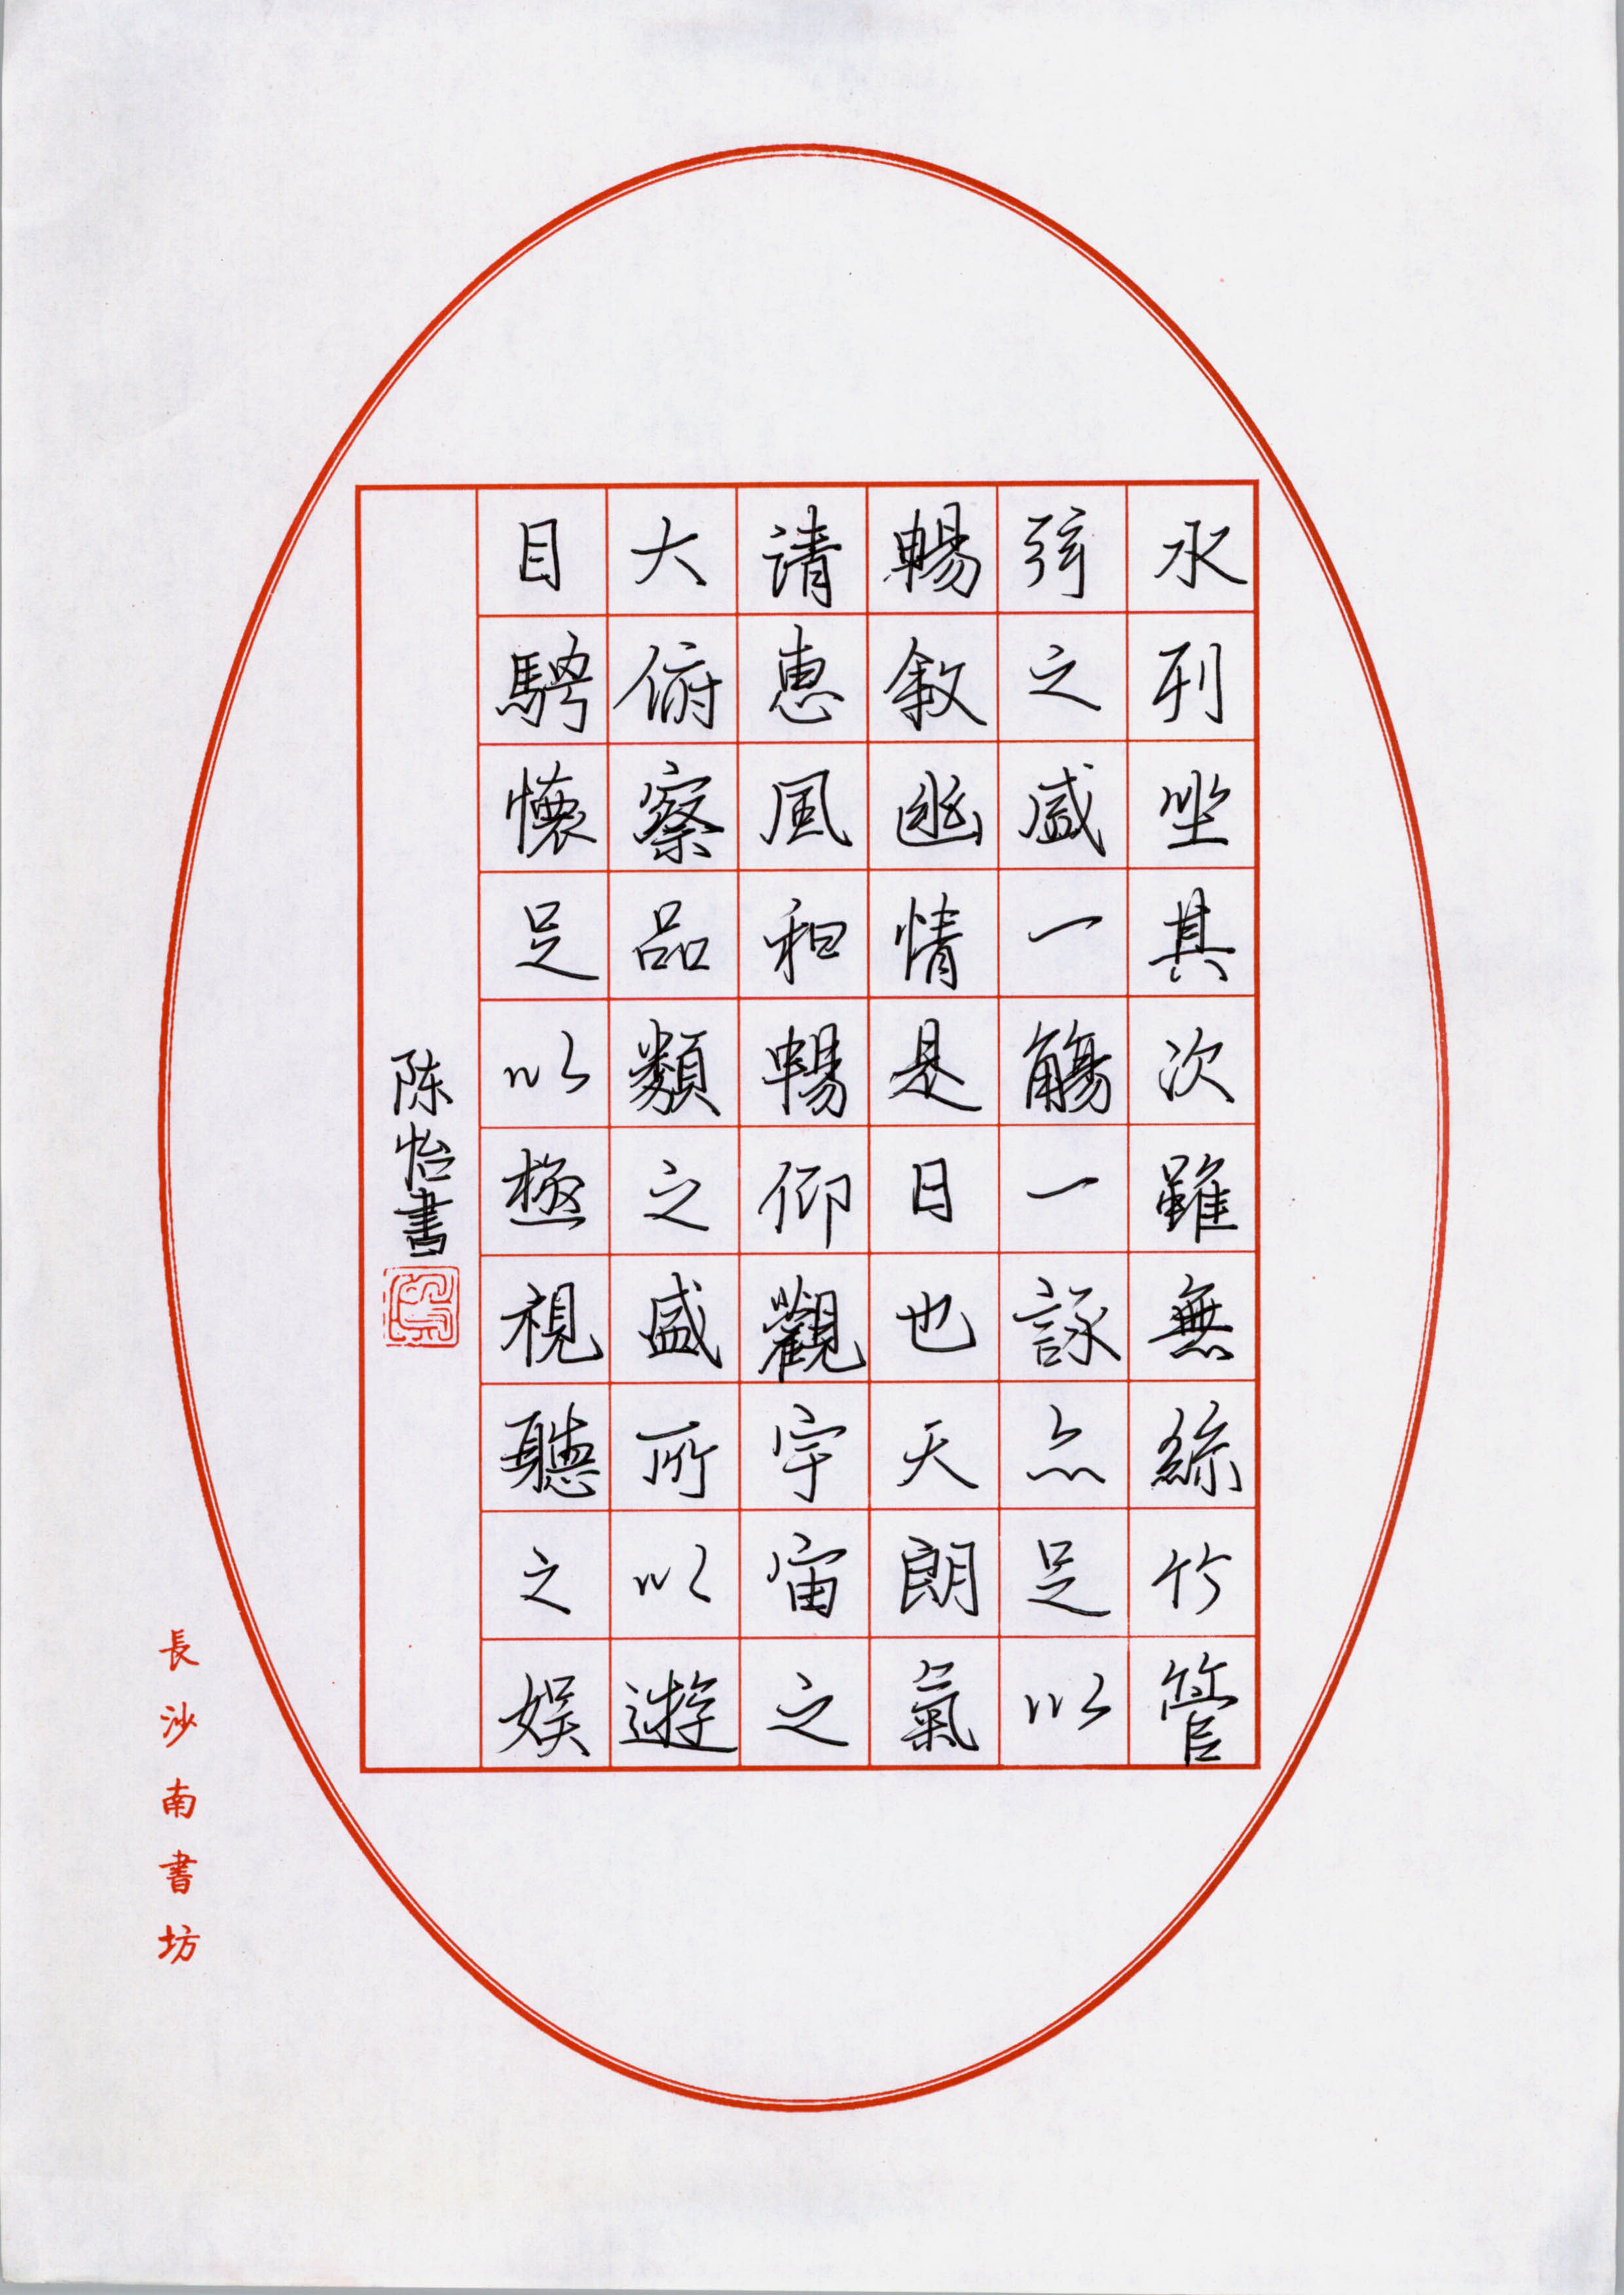 水列坐其次雖無絲竹管
弦之盛一觴一詠亦足以
暢敘幽情是日也天朗氣
请惠風和暢仰觀宇宙之
大俯察品類之盛所以遊
目騁懷足以極視聽之娱
陈怡書
長沙南書坊